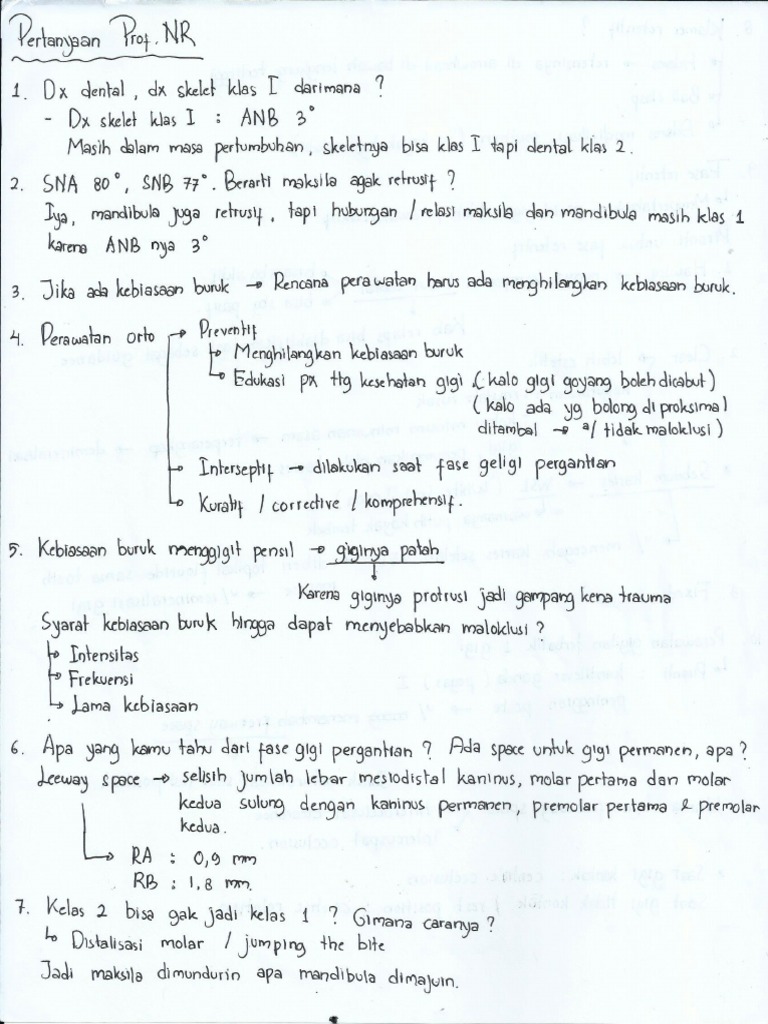 Pertanyaan Prof. NR
1. Dx dental, dx skelet klas I darimana ?
- Dx skelet klas I : ANB 3°
Masih dalam masa pertumbuhan, skeletnya bisa klas I tapi dental klas 2.
2. SNA 80°, SNB 77°. Berarti maksila agak retrusif ?
Iya, mandibula juga retrusif, tapi hubungan / relasi maksila dan mandibula masih klas 1
karena ANB nya 3°
3. Jika ada kebiasaan buruk → Rencana perawatan harus ada menghilangkan kebiasaan buruk.
4. Perawatan orto → Preventif
↳ Menghilangkan kebiasaan buruk
↳ Edukasi px ttg kesehatan gigi (kalo gigi goyang boleh dicabut)
(kalo ada yg bolong di proksimal
ditambal → a/ tidak maloklusi)
→ Interseptif → dilakukan saat fase geligi pergantian
→ Kuratif / corrective / komprehensif.
5. Kebiasaan buruk menggigit pensil → giginya patah
Karena giginya protrusi jadi gampang kena trauma
Syarat kebiasaan buruk hingga dapat menyebabkan maloklusi ?
↳ Intensitas
↳ Frekuensi
↳ Lama kebiasaan
6. Apa yang kamu tahu dari fase gigi pergantian ? Ada space untuk gigi permanen, apa ?
Leeway space → selisih jumlah lebar mesiodistal kaninus, molar pertama dan molar
kedua sulung dengan kaninus permanen, premolar pertama & premolar
kedua.
↳ RA : 0,9 mm
RB : 1,8 mm.
7. Kelas 2 bisa gak jadi kelas 1 ? Gimana caranya ?
↳ Distalisasi molar / jumping the bite
Jadi maksila dimundurin apa mandibula dimajuin.